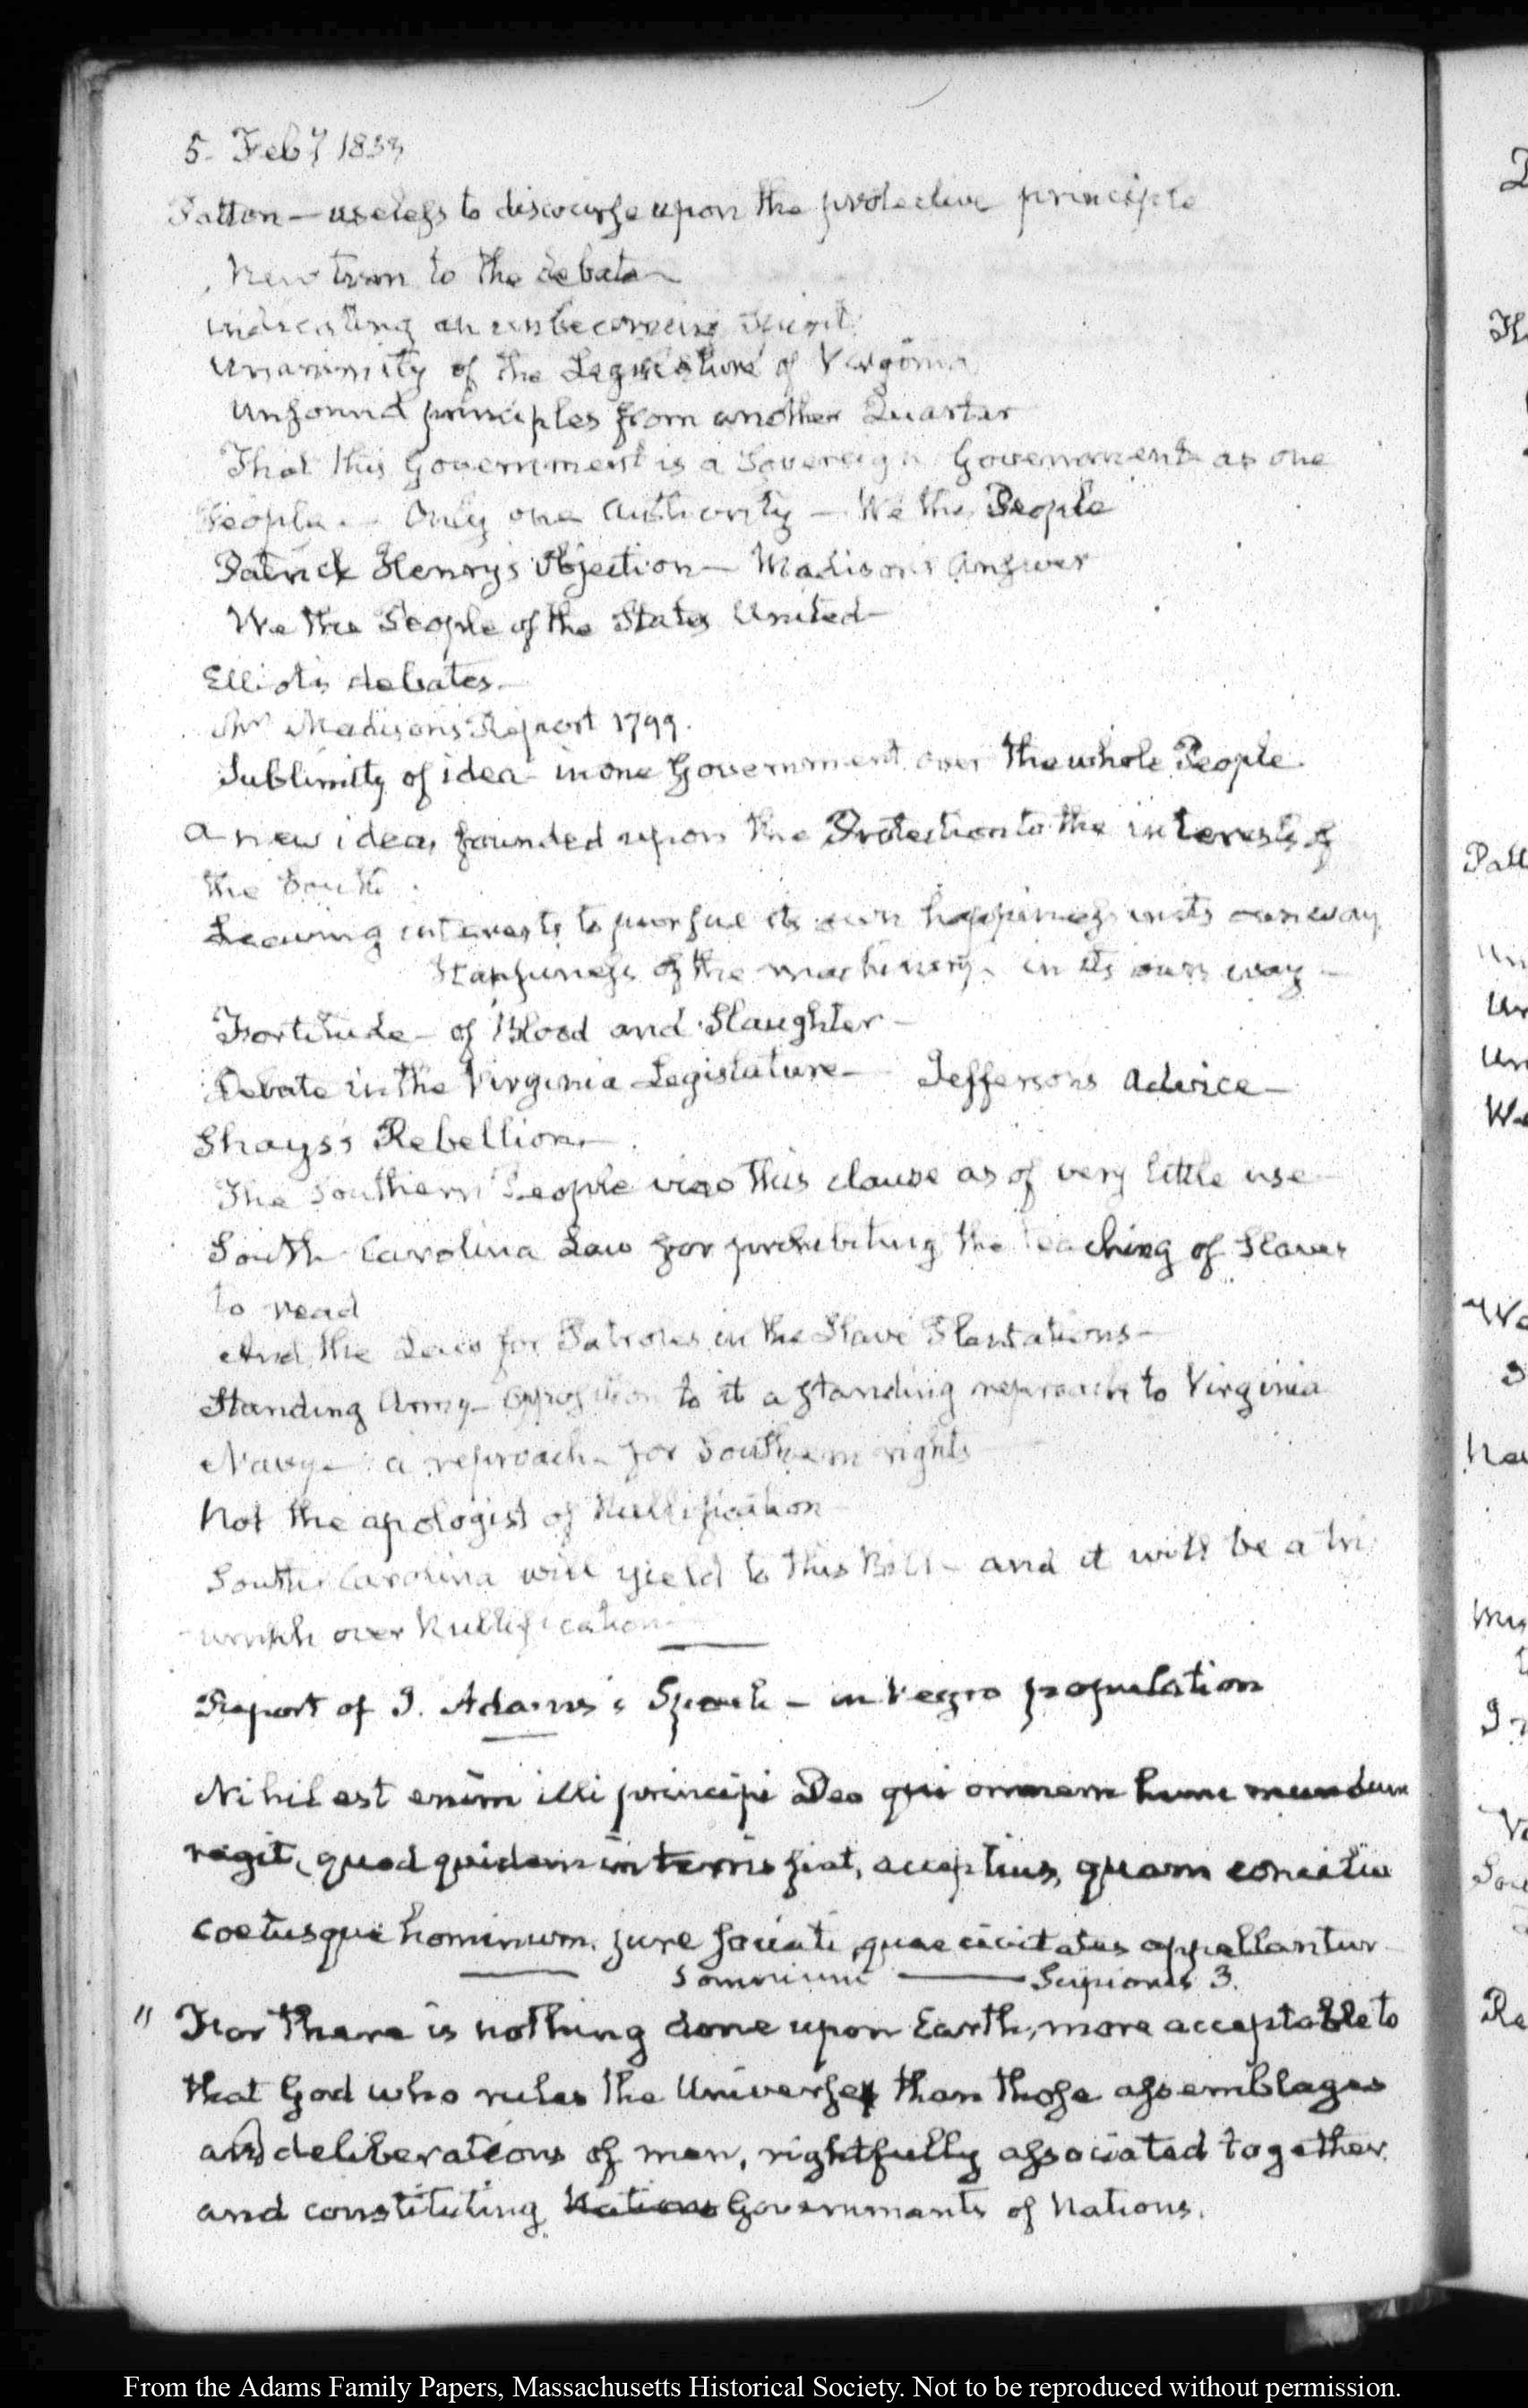 5. Feby 1833
Patton — useless to discourse upon the protective principle
New turn to the debate —
indicating an unbecoming spirit
Unanimity of the Legislature of Virginia
Unsound principles from another Quarter
That this Government is a Sovereign Government as one
People — Only one Authority — We the People
Patrick Henry's Objection — Madison's Answer
We the People of the States United —
Elliot's debates —
Mr Madisons Report 1799.
Sublimity of idea in one Government over the whole People.
a new idea, founded upon the Protection to the interests of
the South
Leaving interests to pursue its own happiness in its own way
of the machinery in its own way —
Fortitude — of Blood and Slaughter —
Debate in the Virginia Legislature — Jeffersons advice —
Shays's Rebellion —
The Southern People view this clause as of very little use
South Carolina Law for prohibiting the teaching of Slaves
to read
And the Laws for Patroles in the Slave Plantations —
Standing Army — opposition to it a standing reproach to Virginia
Navy — a reproach for Southern rights
Not the apologist of Nullification
South Carolina will yield to this Bill — and it will be a tri
umph over Nullification —
Report of J. Adams's Speech — in Negro population
Nihil est enim illi principi Deo qui omnem hunc mundum
regit, quod quidem in terris fiat, acceptius, quam concilia
coetusque hominum, jure sociati, quae civitates appellantur
Somnium — Scipionis 3.
" For there is nothing done upon Earth, more acceptable to
that God who rules the Universe, than those assemblages
and deliberations of men, rightfully associated together
and constituting Nations Governments of Nations.
From the Adams Family Papers, Massachusetts Historical Society. Not to be reproduced without permission.